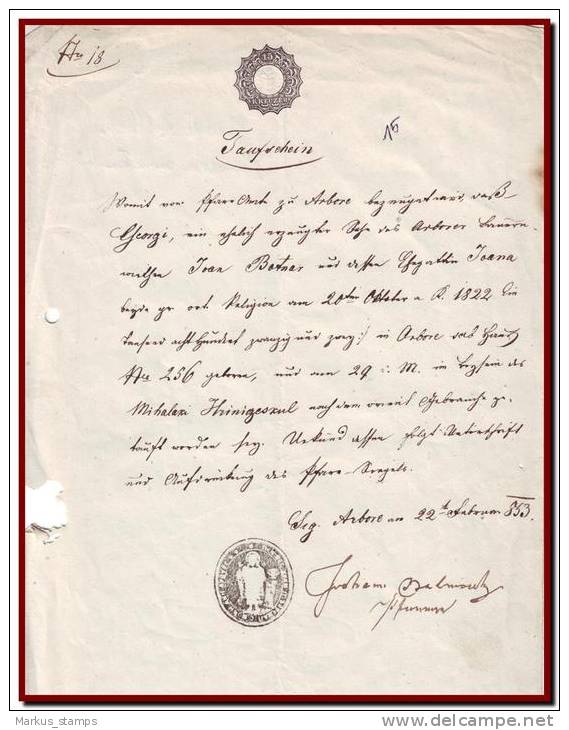 Nro 18
15
KREUZER
15
Taufschein
Womit vom Pfarr Amte zu Arbore bezeuget wird, daß
Georgi, ein ehelich erzeugter Sohn des Arborer
Ioan Botnar und dessen Ehegattin Ioana
beyde gr. ort. Religion am 20ten Oktober a. K. 1822 Ein
tausend acht Hundert zwanzig und zwey in Arbore sub Haus
Nro 256 geboren, und am 29 d. M. in Beysein des
Mihalaxi nach dem orient. Gebrauche ge-
tauft worden sey. Urkund dessen folgt Unterschrift
und Aufdrückung des Pfarr-Siegels.
Sig. Arbore am 22t Februar 853.
Pfarrer
Markus_stamps
www.delcampe.net